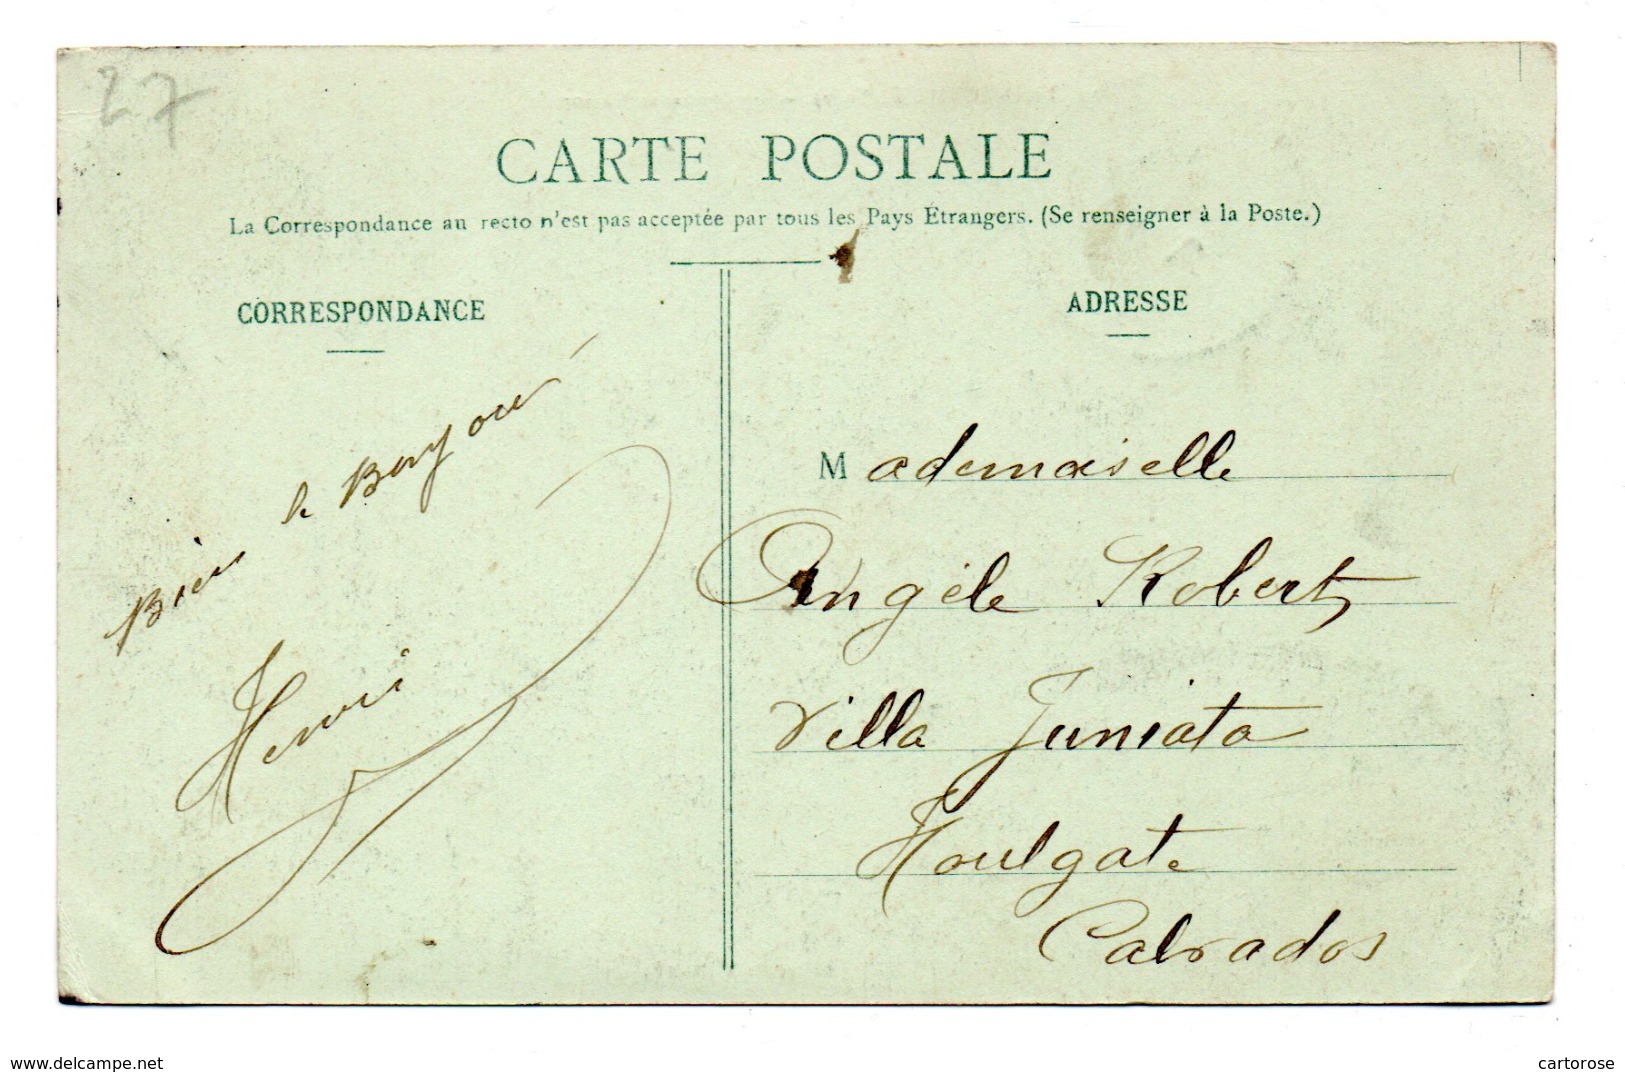 27
CARTE POSTALE
La Correspondance au recto n'est pas acceptée par tous les Pays Etrangers. (Se renseigner à la Poste.)
CORRESPONDANCE
Bien le Bonjour
Henri
ADRESSE
Mademoiselle
Angèle Robert
Villa Juniata
Houlgate
Calvados
www.delcampe.net
cartorose